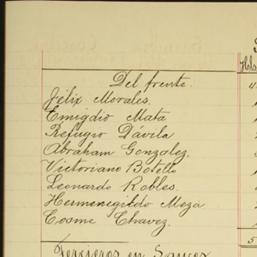 Del frente.
Félix Morales.
Emigdio Mata
Refugio Dávila
Abraham Gonzalez.
Victoriano Botello
Leonardo Robles.
Hermenegildo Meza
Cosme Chavez.
en